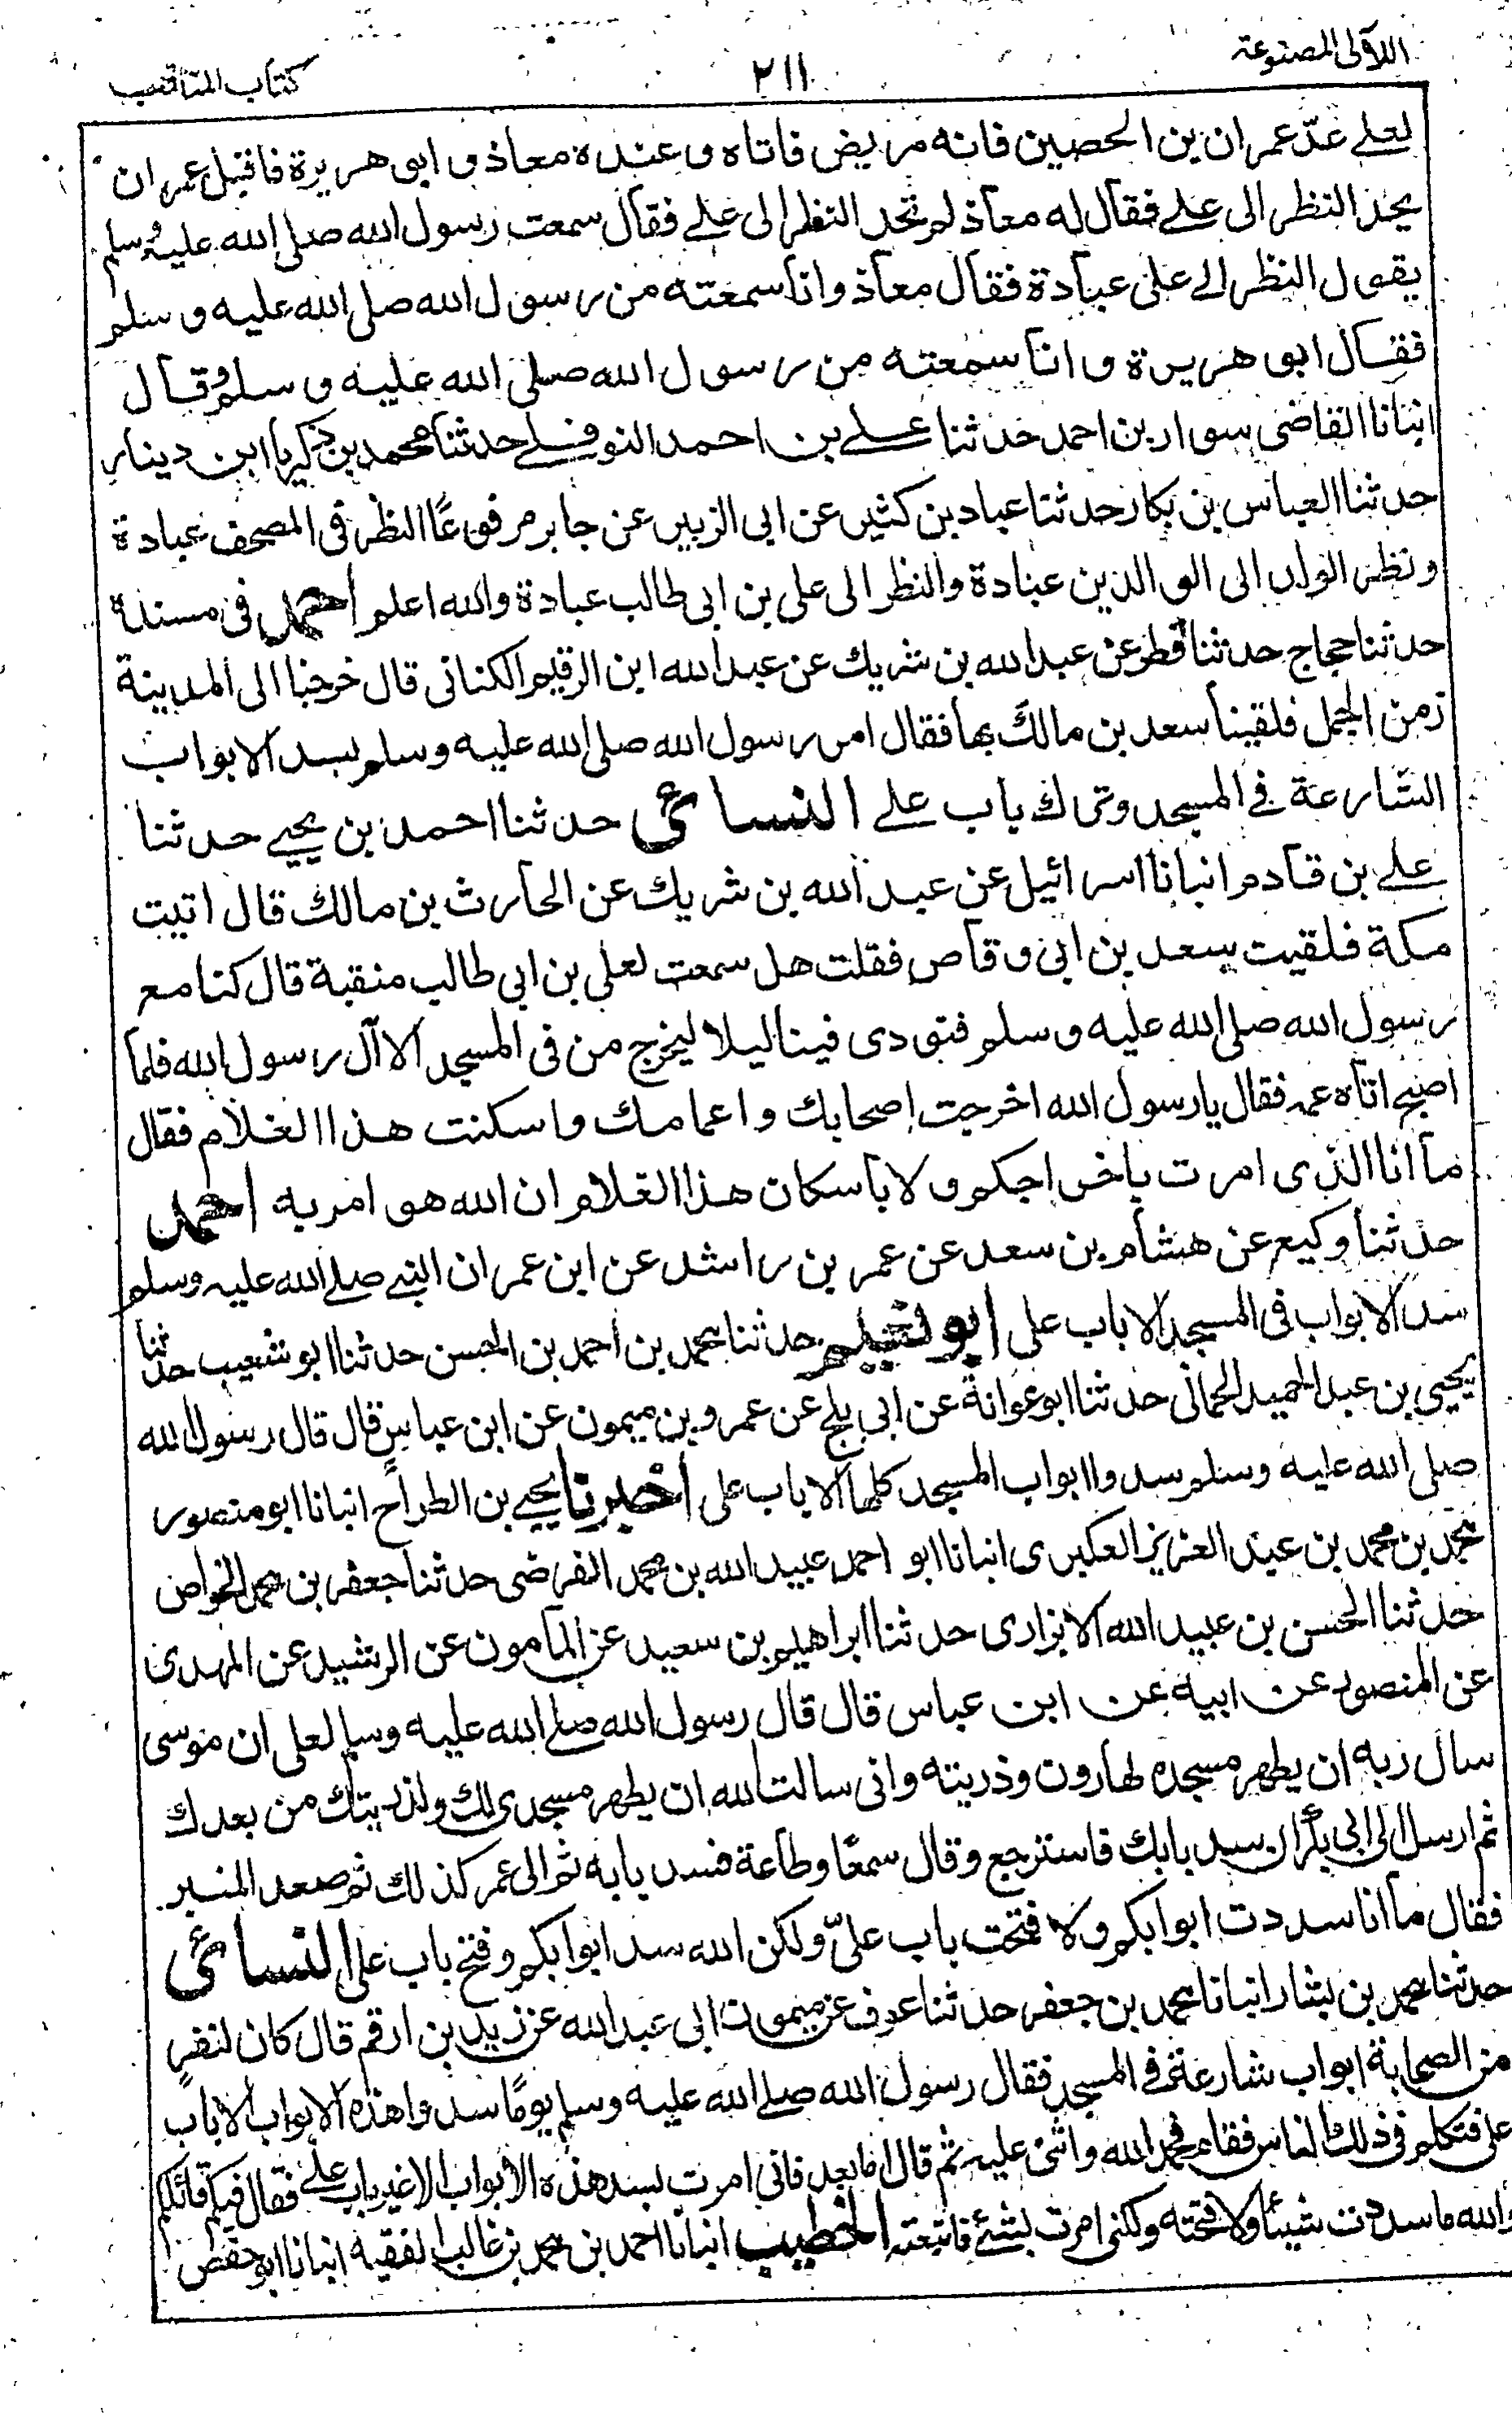 اللآلى المصنوعة
٢١١
كتاب المناقب
لعلى عدّ عمران بن الحصين فانه مريض فاتاه و عنده معاذ و ابى هريرة فاقبل عمران
يحد النظر الى على فقال له معاذ لم تحد النظر الى على فقال سمعت رسول الله صلى الله عليه وسلم
يقول النظر الى على عبادة فقال معاذ وانا سمعته من رسول الله صلى الله عليه و سلم
فقال ابو هريرة و انا سمعته من رسول الله صلى الله عليه و سلم و قال
انبانا القاضى سوار بن احمد حدثنا على بن احمد النوفلى حدثنا محمد بن زكريا ابن دينار
حدثنا العباس بن بكار حدثنا عباد بن كثير عن ابى الزبير عن جابر مرفوعًا النظر فى المصحف عبادة
و نظر الولد الى الوالدين عبادة والنظر الى على بن ابى طالب عبادة والله اعلم احمد فى مسنده
حدثنا حجاج حدثنا فطر عن عبد الله بن شريك عن عبد الله ابن الرقيم الكنانى قال خرجنا الى المدينة
زمن الجمل فلقينا سعد بن مالك بها فقال امر رسول الله صلى الله عليه وسلم بسد الابواب
الشارعة فى المسجد وترك باب على النسائى حدثنا احمد بن يحيى حدثنا
على بن قادم انبانا اسرائيل عن عبد الله بن شريك عن الحارث بن مالك قال اتيت
مكة فلقيت سعد بن ابى وقاص فقلت هل سمعت لعلى بن ابى طالب منقبة قال كنا مع
رسول الله صلى الله عليه و سلم فنودى فينا ليلا ليخرج من فى المسجد الا آل رسول الله فلما
اصبح اتاه عمه فقال يا رسول الله اخرجت اصحابك و اعمامك و اسكنت هذا الغلام فقال
ما انا الذى امرت باخراجكم و لا باسكان هذا الغلام ان الله هو امر به احمد
حدثنا وكيع عن هشام بن سعد عن عمر بن راشد عن ابن عمر ان النبى صلى الله عليه وسلم
سد الابواب فى المسجد الا باب على ابو نعيم حدثنا محمد بن احمد بن الحسن حدثنا ابو شعيب حدثنا
يحيى بن عبد الحميد الحمانى حدثنا ابو عوانة عن ابى بلج عن عمرو بن ميمون عن ابن عباس قال قال رسول الله
صلى الله عليه وسلم سدوا ابواب المسجد كلها الا باب على اخبرنا يحيى بن الطراح انبانا ابو منصور
محمد بن محمد بن عبد العزيز العكبرى انبانا ابو احمد عبيد الله بن محمد الفرضى حدثنا جعفر بن محمد الخواص
حدثنا الحسن بن عبيد الله الابزارى حدثنا ابراهيم بن سعيد عن المامون عن الرشيد عن المهدى
عن المنصور عن ابيه عن ابن عباس قال قال رسول الله صلى الله عليه وسلم لعلى ان موسى
سال ربه ان يطهر مسجده لهارون وذريته وانى سالت الله ان يطهر مسجدى لك ولذريتك من بعدك
ثم ارسل الى ابى بكر ان سد بابك فاسترجع وقال سمعًا وطاعة فسد بابه ثم الى عمر كذلك ثم صعد المنبر
فقال ما انا سددت ابوابكم ولا فتحت باب علىّ ولكن الله سد ابوابكم و فتح باب على النسائى
حدثنا محمد بن بشار انبانا محمد بن جعفر حدثنا عوف عن ميمون ابى عبد الله عن زيد بن ارقم قال كان لنفر
من الصحابة ابواب شارعة فى المسجد فقال رسول الله صلى الله عليه وسلم يومًا سدوا هذه الابواب الا باب
على فتكلم فى ذلك الناس فقام فحمد الله واثنى عليه ثم قال اما بعد فانى امرت بسد هذه الابواب الا غير باب على فقال فيكم قائلكم
والله ما سددت شيئا ولا فتحته ولكنى امرت بشئ فاتبعته الخطيب انبانا احمد بن محمد بن غالب الفقيه انبانا ابو حفص